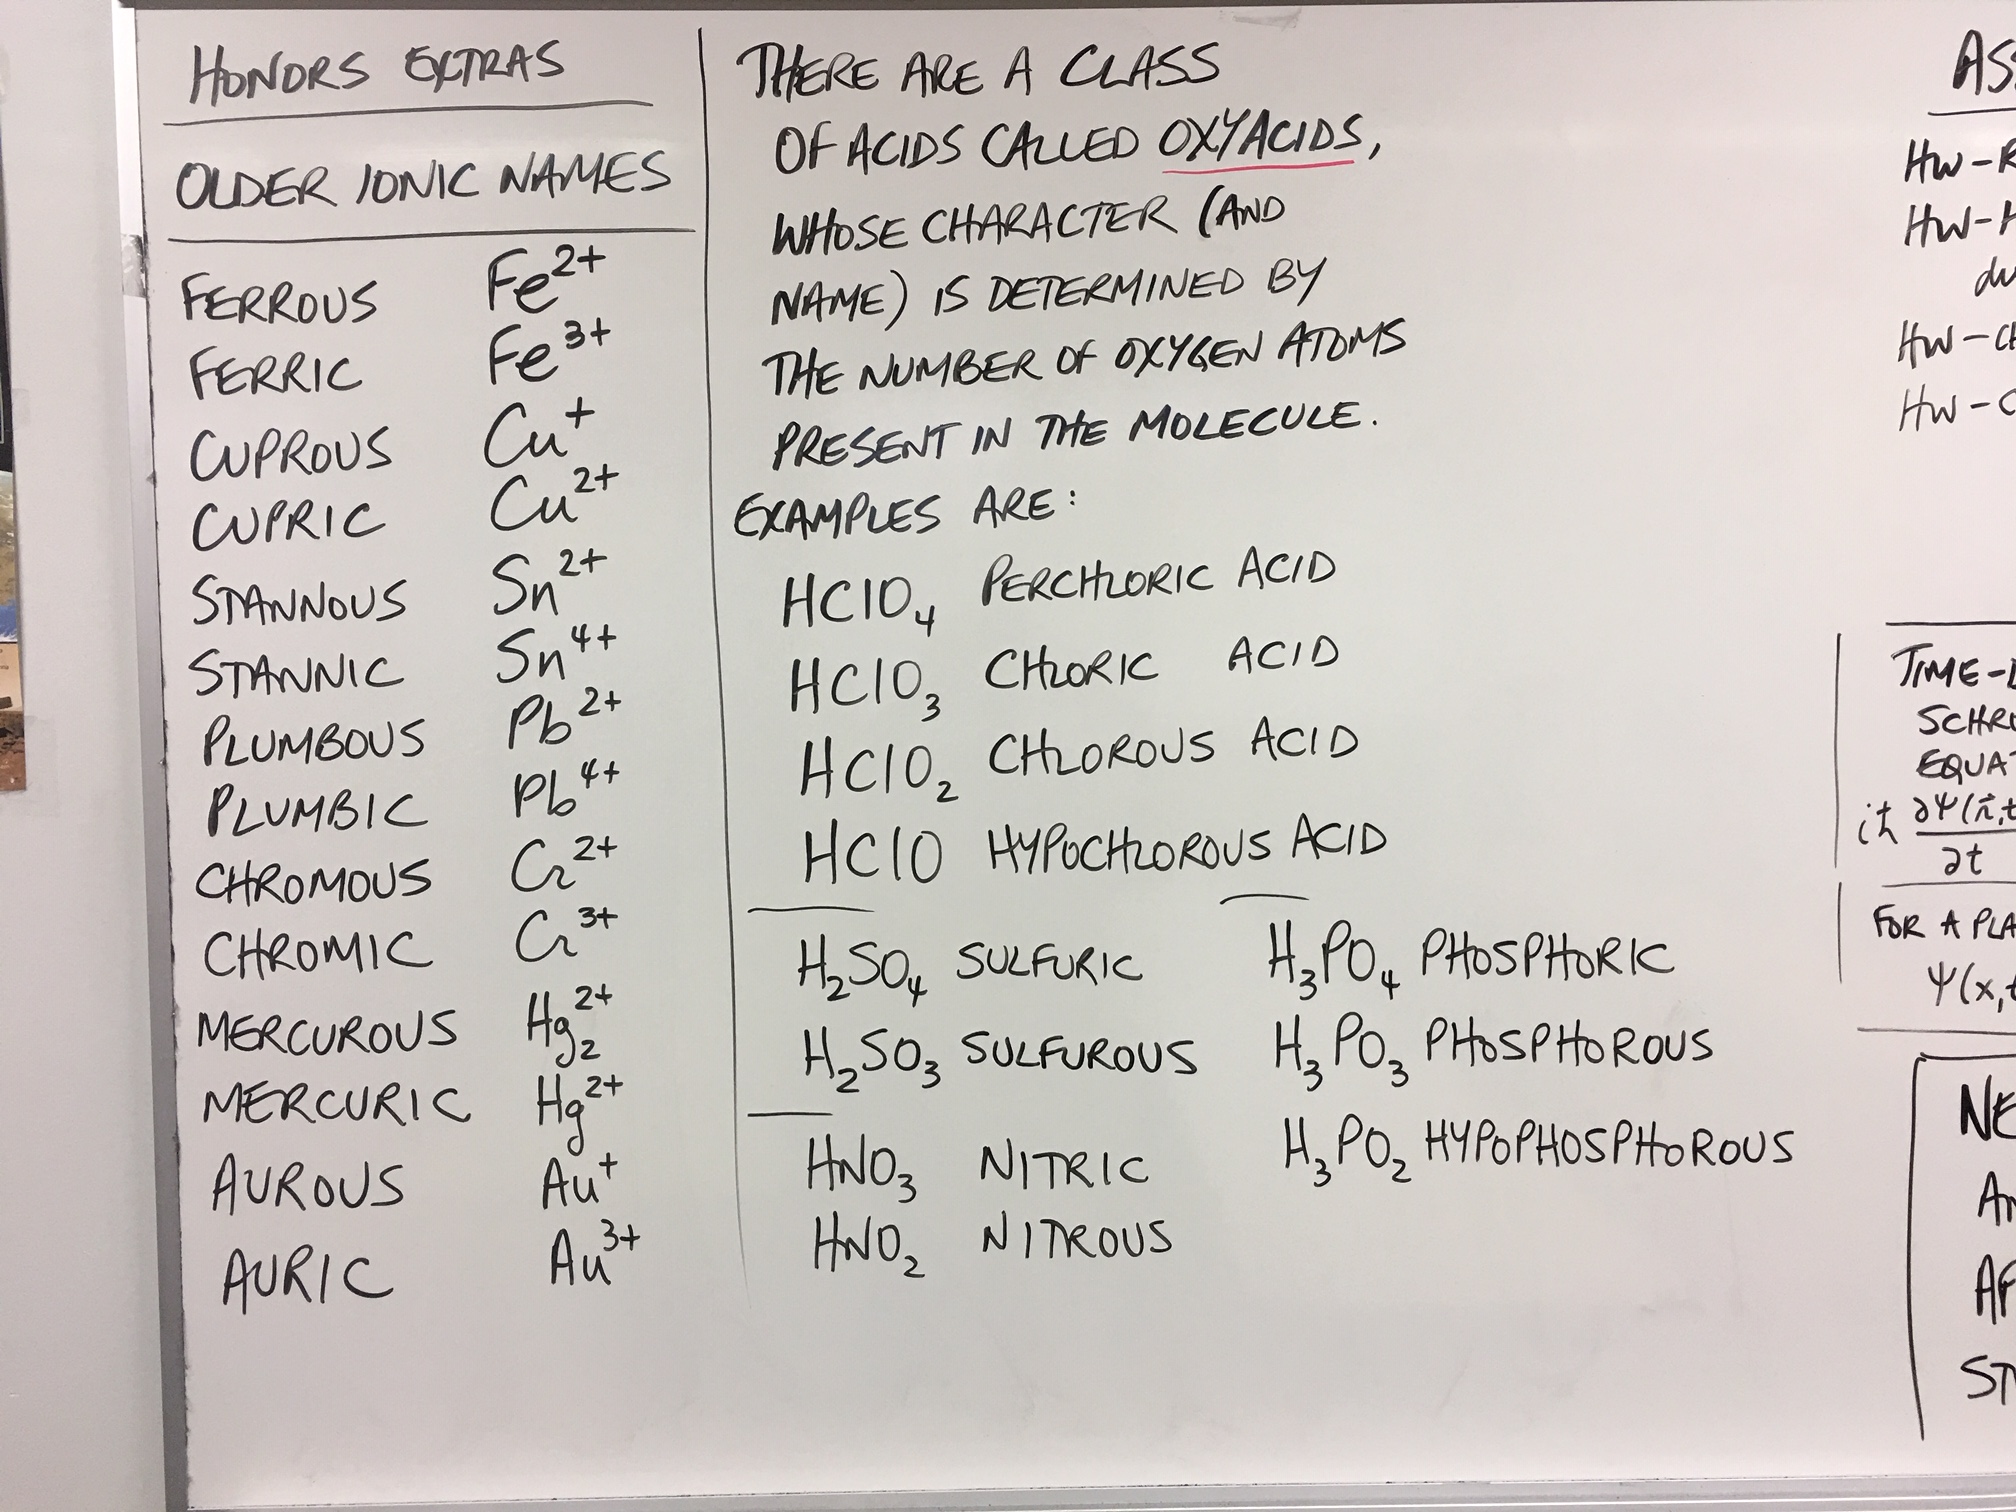 HONORS EXTRAS
OLDER IONIC NAMES
FERROUS Fe²⁺
FERRIC Fe³⁺
CUPROUS Cu⁺
CUPRIC Cu²⁺
STANNOUS Sn²⁺
STANNIC Sn⁴⁺
PLUMBOUS Pb²⁺
PLUMBIC Pb⁴⁺
CHROMOUS Cr²⁺
CHROMIC Cr³⁺
MERCUROUS Hg₂²⁺
MERCURIC Hg²⁺
AUROUS Au⁺
AURIC Au³⁺
THERE ARE A CLASS
OF ACIDS CALLED OXYACIDS,
WHOSE CHARACTER (AND
NAME) IS DETERMINED BY
THE NUMBER OF OXYGEN ATOMS
PRESENT IN THE MOLECULE.
EXAMPLES ARE:
HClO₄ PERCHLORIC ACID
HClO₃ CHLORIC ACID
HClO₂ CHLOROUS ACID
HClO HYPOCHLOROUS ACID
H₂SO₄ SULFURIC
H₂SO₃ SULFUROUS
HNO₃ NITRIC
HNO₂ NITROUS
H₃PO₄ PHOSPHORIC
H₃PO₃ PHOSPHOROUS
H₃PO₂ HYPOPHOSPHOROUS
HW-
HW-
HW-
HW-
TIME-
iħ ∂Ψ(r⃗,t
∂t
FOR A PLA
Ψ(x,